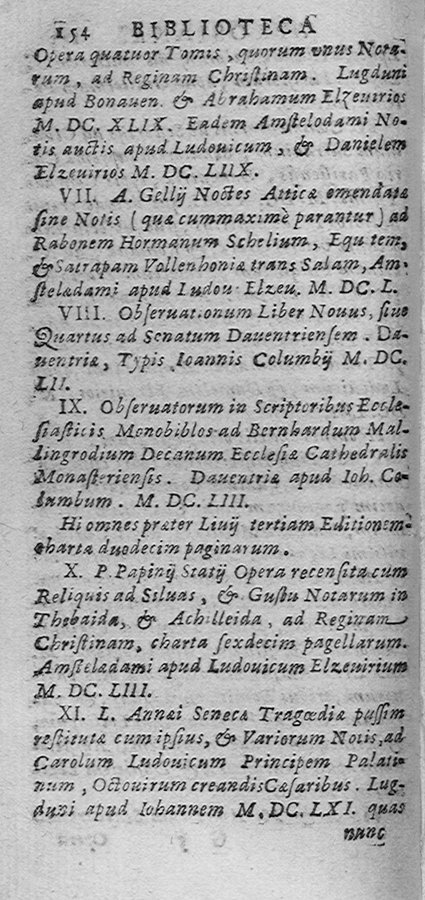 154 BIBLIOTECA
Opera quatuor Tomis, quorum vnus Nota-
rum, ad Reginam Christinam. Lugduni
apud Bonauen. & Abrahamum Elzeuirios
M. DC. XLIX. Eadem Amstelodami No-
tis auctis apud Ludouicum, & Danielem
Elzeuirios M. DC. LIIX.
VII. A. Gellij Noctes Atticæ emendatæ
sine Notis (quæ cummaximè parantur) ad
Rabonem Hormanum Schelium, Equ tem,
& Satrapam Vollenhoniæ trans Salam, Am-
stelædami apud Ludou. Elzeu. M. DC. L.
VIII. Obseruationum Liber Nouus, siue
Quartus ad Senatum Dauentriensem. Da-
uentriæ, Typis Ioannis Columbij M. DC.
LII.
IX. Obseruatorum in Scriptoribus Eccle-
siasticis Monobiblos ad Bernhardum Mal-
lingrodium Decanum Ecclesiæ Cathedralis
Monasteriensis. Dauentriæ apud Ioh. Co-
lumbum. M. DC. LIII.
Hi omnes præter Liuij tertiam Editionem
charta duodecim paginarum.
X. P. Papinij Statij Opera recensita cum
Reliquis ad Siluas, & Gustu Notarum in
Thebaida, & Achilleida, ad Reginam
Christinam, charta sexdecim pagellarum.
Amstelædami apud Ludouicum Elzeuirium
M. DC. LIII.
XI. L. Annæi Senecæ Tragœdiæ passim
restitutæ cum ipsius, & Variorum Notis, ad
Carolum Ludouicum Principem Palati-
num, Octouirum creandis Cæsaribus. Lug-
duni apud Iohannem M. DC. LXI. quas
nunc